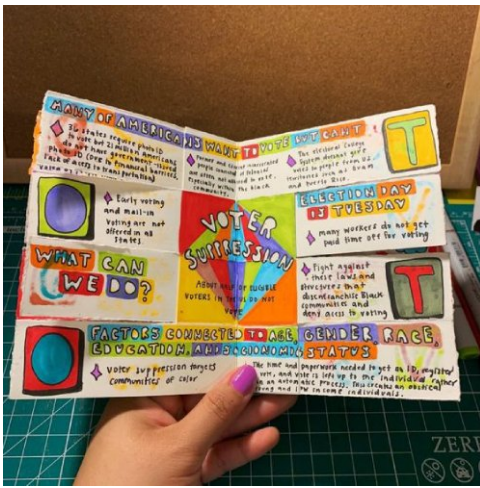 MANY OF AMERICANS WANT TO VOTE BUT CAN'T
36 states require photo ID
to vote but 21 million Americans
do not have government-issued
photo ID (due to financial barriers,
lack of access to transportation)
Former and incarcerated
people convicted
of felonies
are often not
allowed to vote,
especially within the black
community.
The electoral college
system doesn't give
votes to people from U.S.
territories such as Guam
and Puerto Rico.
T
Early voting
and mail-in
voting are
not offered in all
states
VOTER
SUPPRESSION
ABOUT HALF OF ELIGIBLE
VOTERS IN THE U.S. DO NOT
VOTE
ELECTION DAY
IS TUESDAY
many workers do not get
paid time off for voting
WHAT CAN
WE DO?
Fight against
these laws and
structures that
disenfranchise Black
communities and
deny access to voting
T
O
FACTORS CONNECTED TO AGE, GENDER, RACE,
EDUCATION, AND SOCIOECONOMIC STATUS
voter suppression targets
communities of color
The time and paperwork needed to get an ID, registered
vote, and vote is left up to the individual rather
an automatic process. This creates an obstacle
young and low income individuals.
ZER